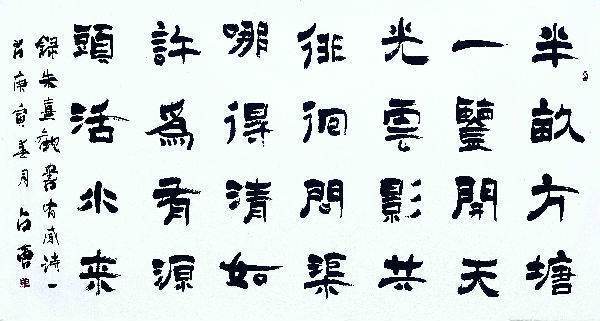 半畝方塘
一鑒開天
光雲影共
徘徊問渠
哪得清如
許爲有源
頭活水来
錄朱熹觀書有感詩一
首庚寅春月